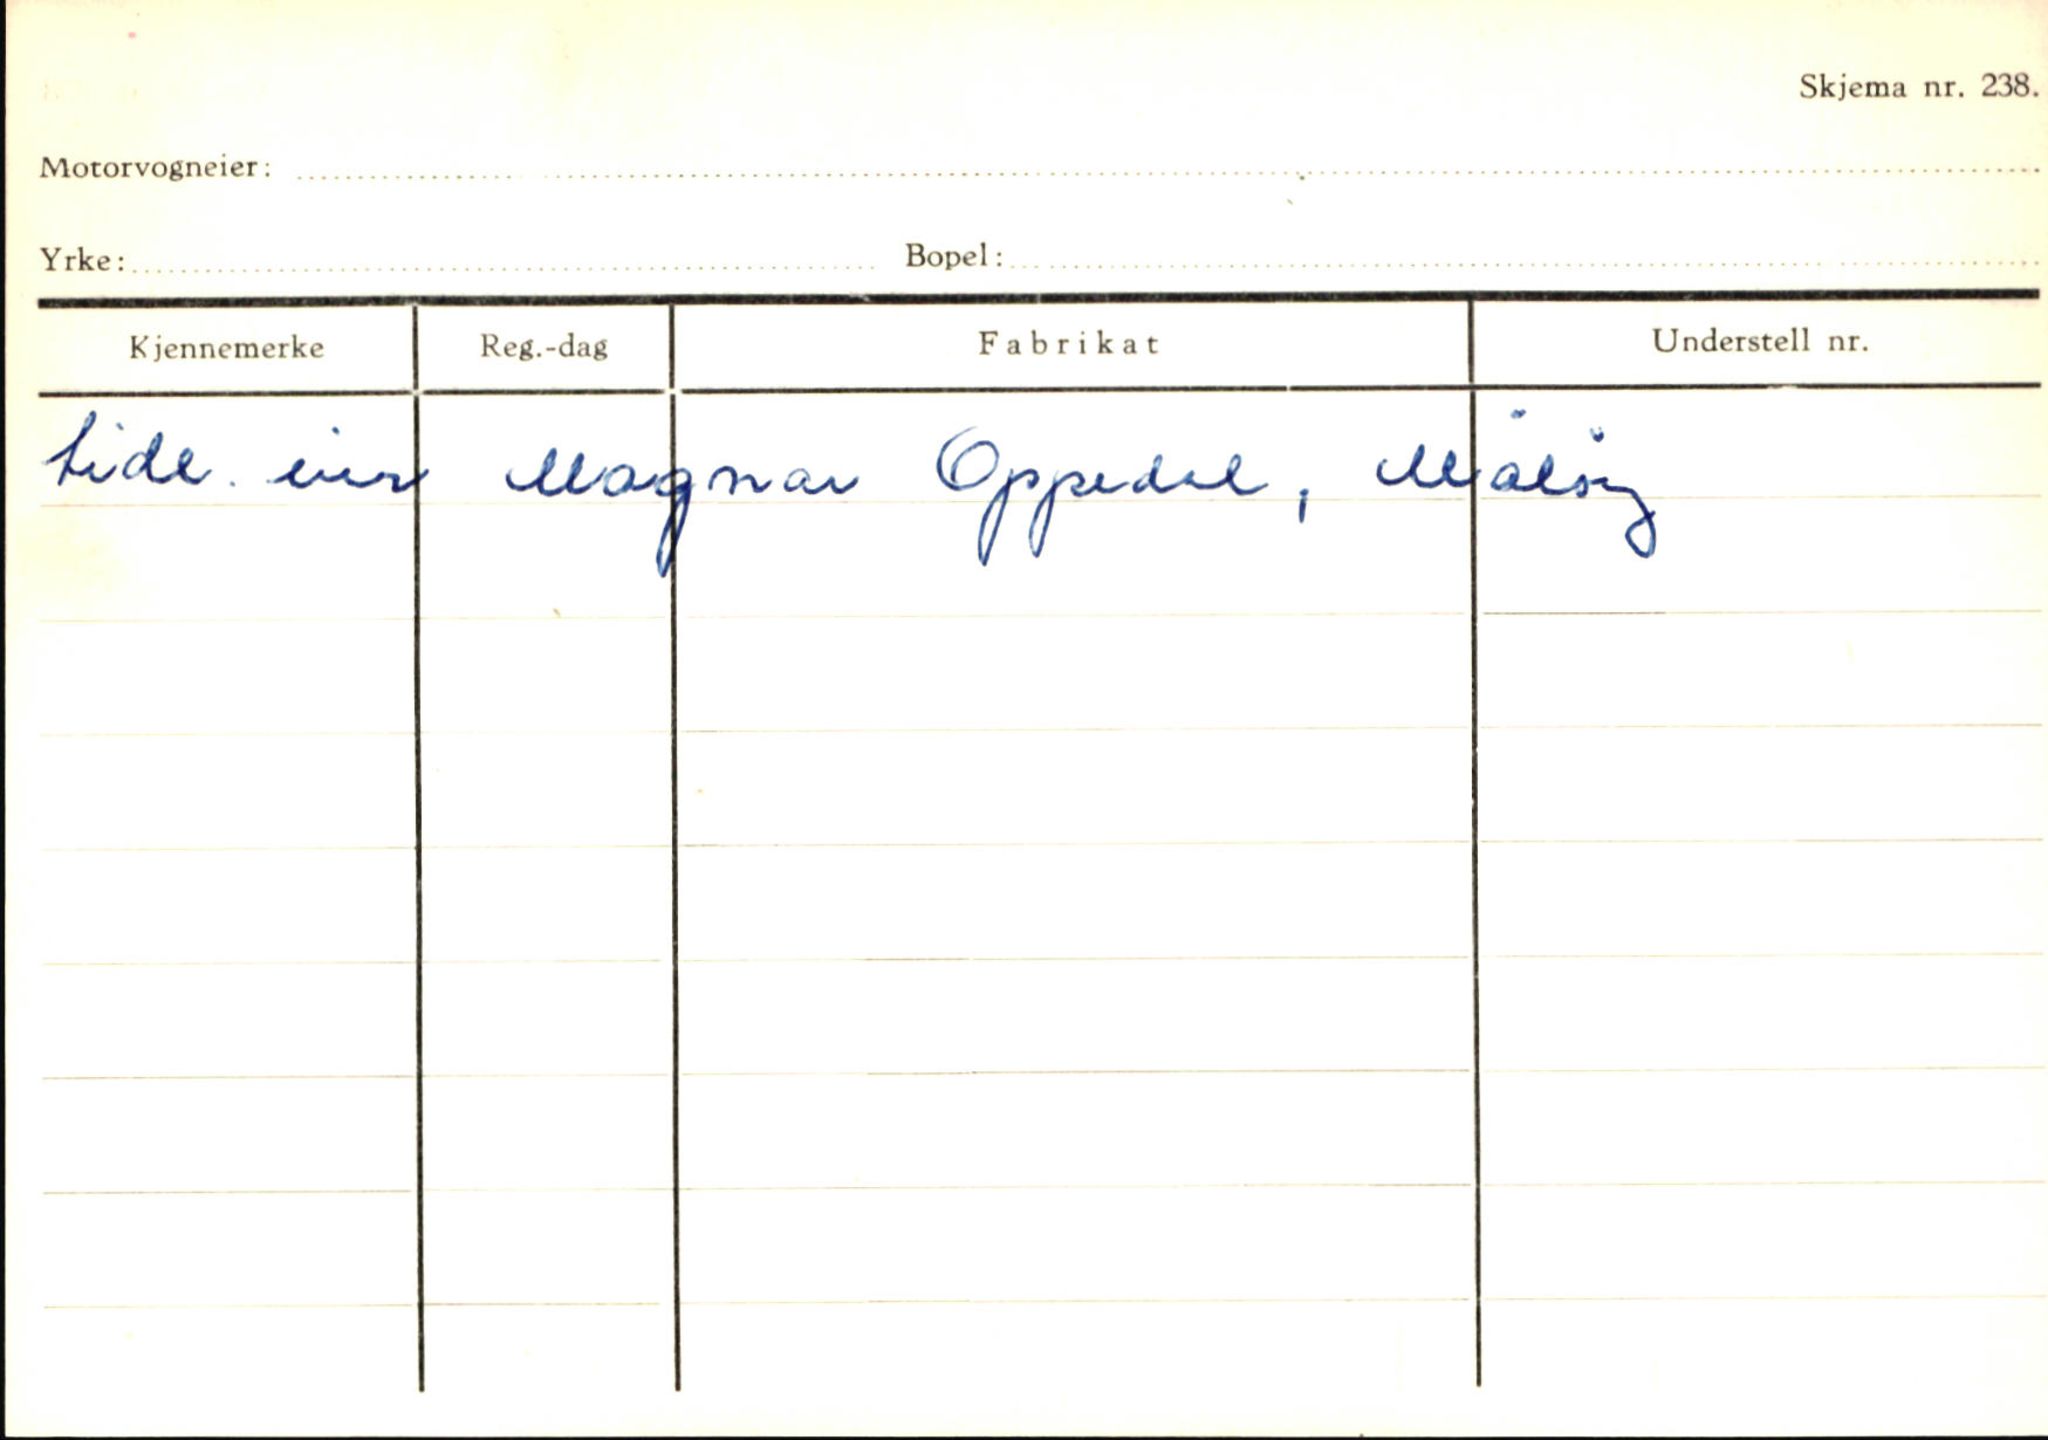 Skjema nr. 238.
Motorvogneier:
Yrke: Bopel:
Kjennemerke Reg.-dag Fabrikat Understell nr.
tidl. eier Magnar Oppedal, Måløy